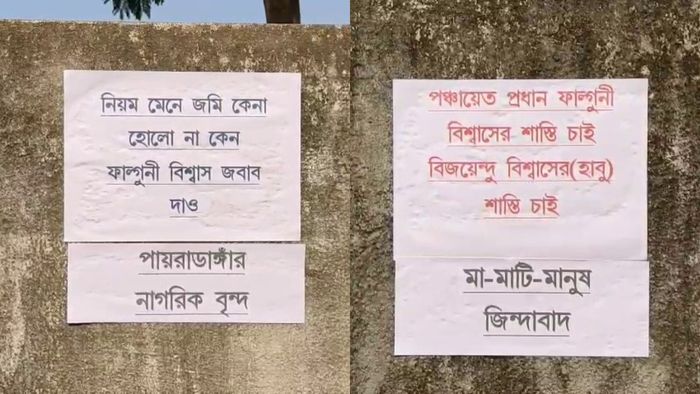 নিয়ম মেনে জমি কেনা
হোলো না কেন
ফাল্গুনী বিশ্বাস জবাব
দাও
পায়রাডাঙ্গাঁর
নাগরিক বৃন্দ
পঞ্চায়েত প্রধান ফাল্গুনী
বিশ্বাসের শাস্তি চাই
বিজয়েন্দু বিশ্বাসের(হাবু)
শাস্তি চাই
মা-মাটি-মানুষ
জিন্দাবাদ